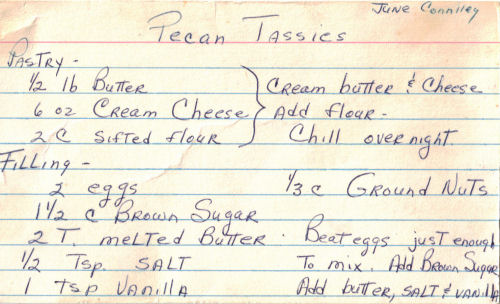 June Connlley
Pecan Tassies
Pastry -
1/2 lb Butter
6 oz Cream Cheese
2 C Sifted flour
Cream butter & Cheese
Add flour -
Chill over night.
Filling -
2 eggs
1 1/2 c Brown Sugar
2 T. melted Butter
1/2 Tsp. Salt
1 tsp Vanilla
1/3 c Ground Nuts
Beat eggs just enough
To mix. Add Brown Sugar
Add butter, salt & vanilla